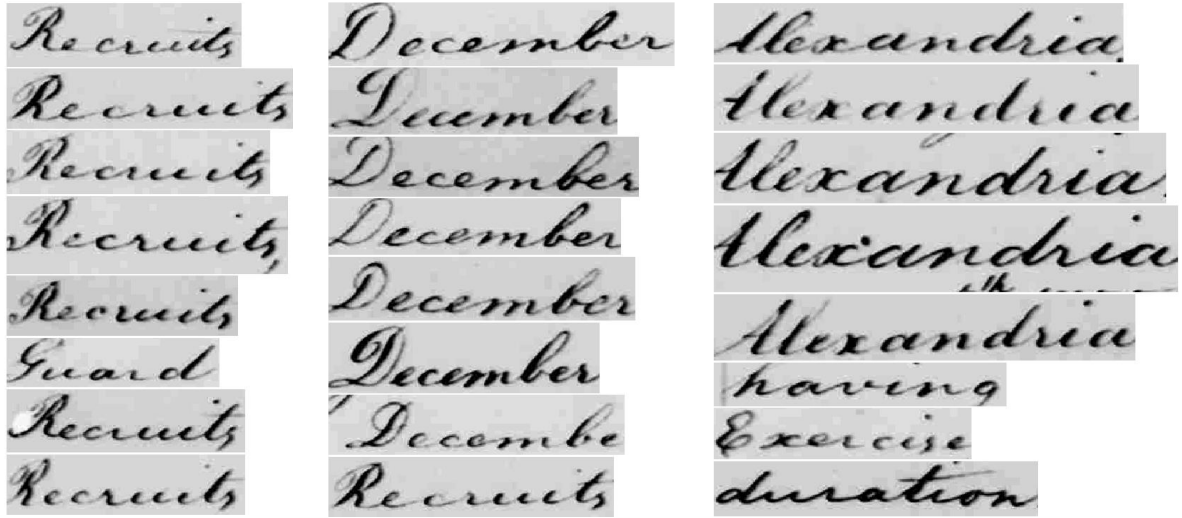 Recruits
Recruits
Recruits
Recruits,
Recruits
Guard
Recruits
Recruits
December
December
December
December
December
December
Decembe
Recruits
Alexandria.
Alexandria
Alexandria.
Alexandria
Alexandria
having
Exercise
duration